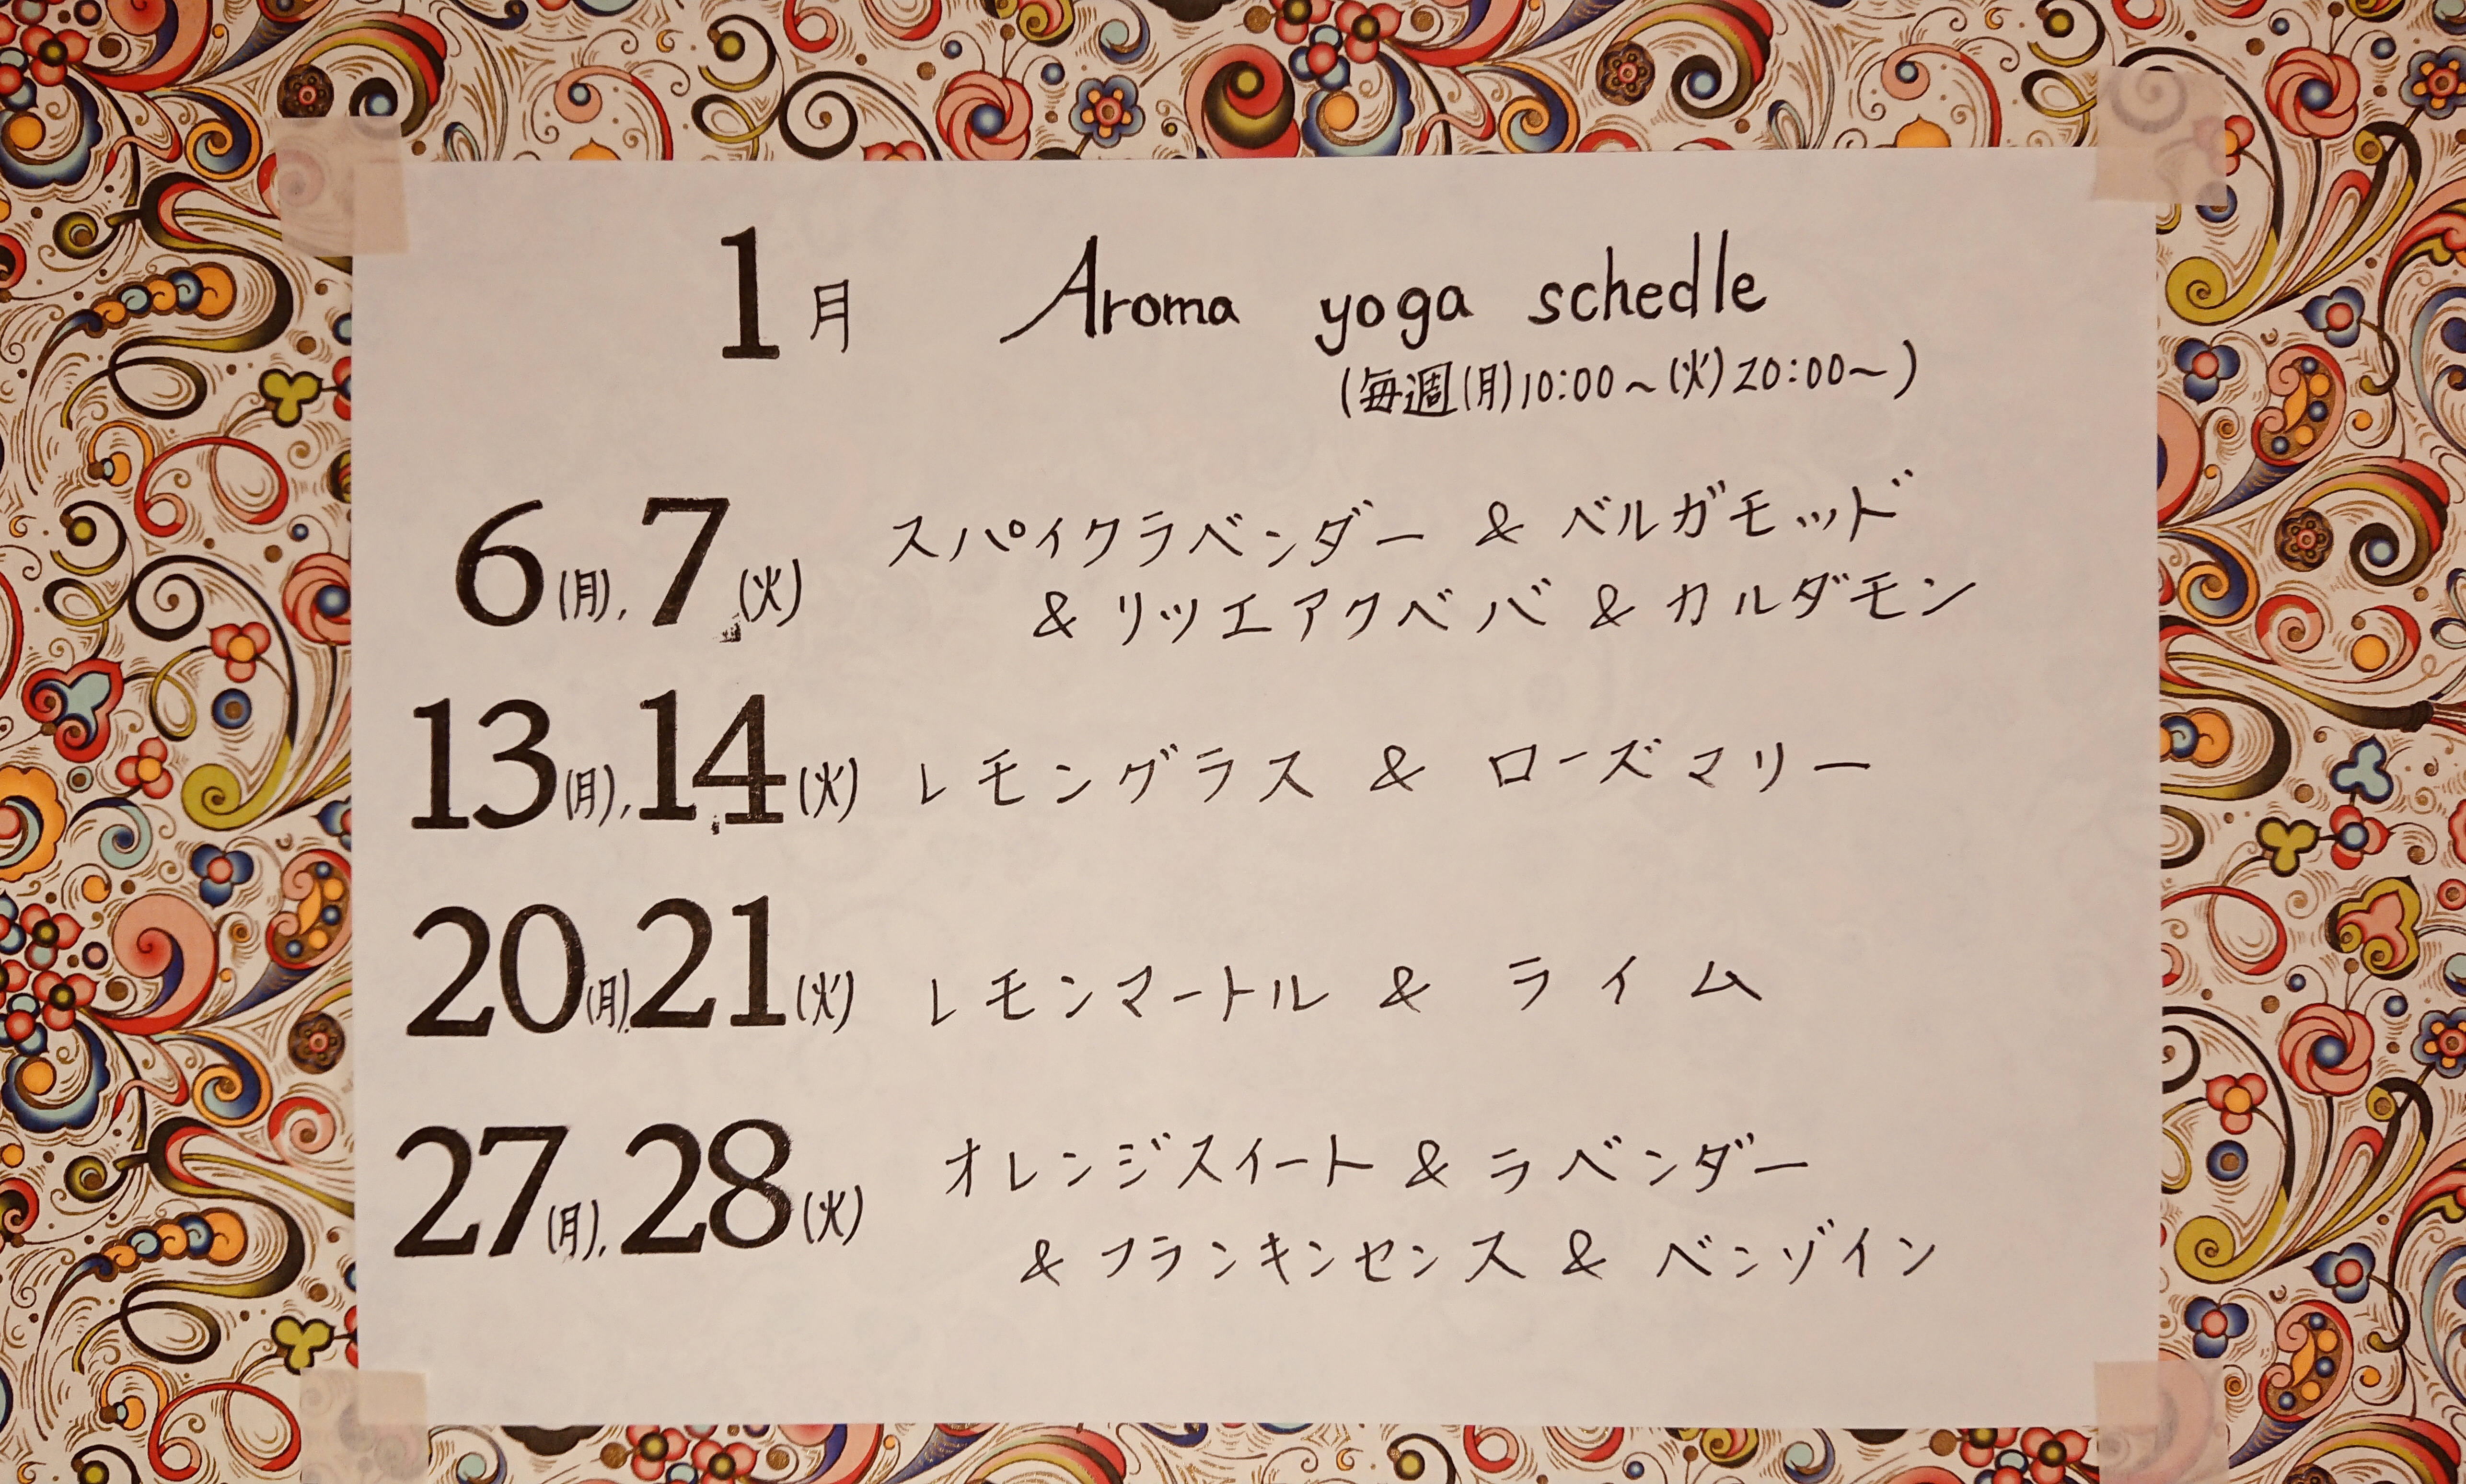 1月 Aroma yoga schedle
(毎週(月)10:00~(火)20:00~)
6(月),7(火) スパイクラベンダー & ベルガモッド
& リツエアクベバ & カルダモン
13(月),14(火) レモングラス & ローズマリー
20(月),21(火) レモンマートル & ライム
27(月),28(火) オレンジスイート & ラベンダー
& フランキンセンス & ベンゾイン